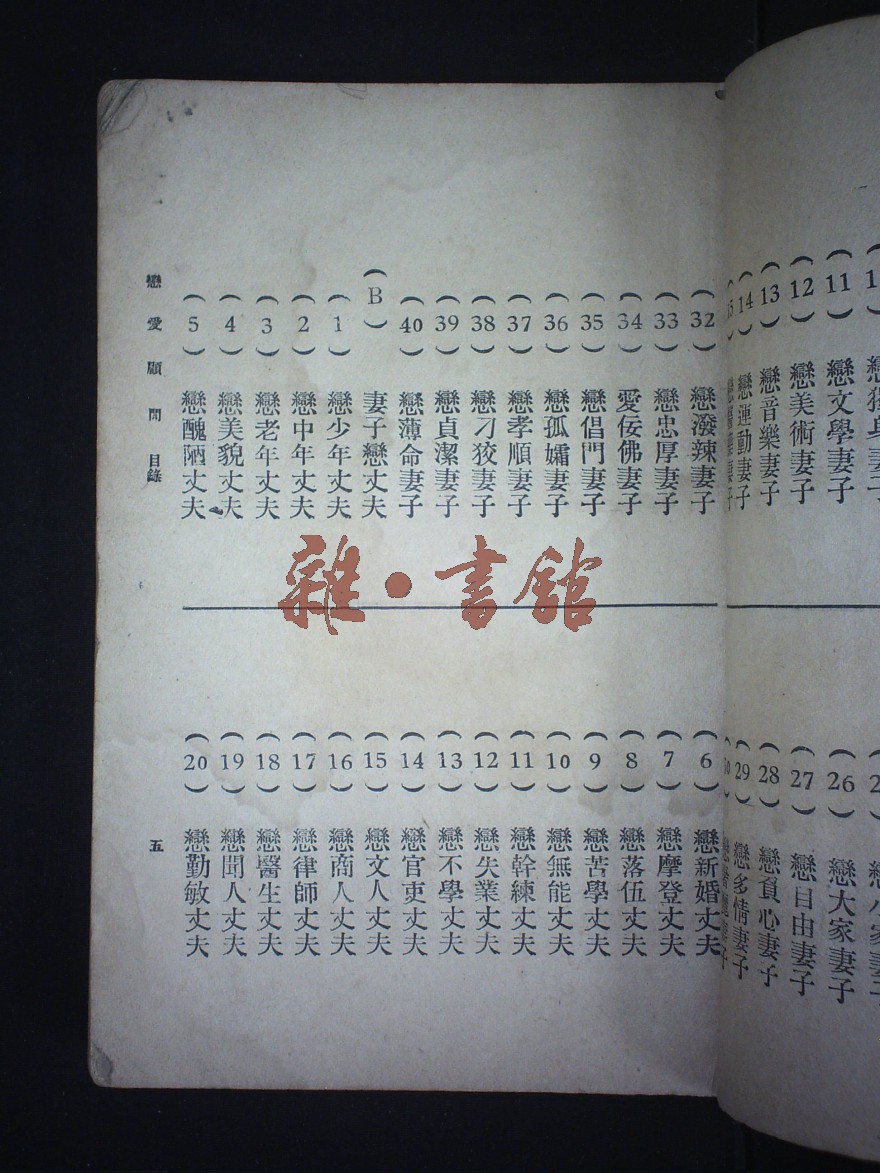 (11)戀文學妻子
(12)戀美術妻子
(13)戀音樂妻子
(14)戀運動妻子
(26)戀大家妻子
(27)戀自由妻子
(28)戀負心妻子
(29)戀多情妻子
(32)戀潑辣妻子
(33)戀忠厚妻子
(34)愛佞佛妻子
(35)戀倡門妻子
(36)戀孤孀妻子
(37)戀孝順妻子
(38)戀刁狡妻子
(39)戀貞潔妻子
(40)戀薄命妻子
(B)妻子戀丈夫
(1)戀少年丈夫
(2)戀中年丈夫
(3)戀老年丈夫
(4)戀美貌丈夫
(5)戀醜陋丈夫
(6)戀新婚丈夫
(7)戀摩登丈夫
(8)戀落伍丈夫
(9)戀苦學丈夫
(10)戀無能丈夫
(11)戀幹練丈夫
(12)戀失業丈夫
(13)戀不學丈夫
(14)戀官吏丈夫
(15)戀文人丈夫
(16)戀商人丈夫
(17)戀律師丈夫
(18)戀醫生丈夫
(19)戀聞人丈夫
(20)戀勤敏丈夫
戀愛顧問 目錄
五
雜·書館